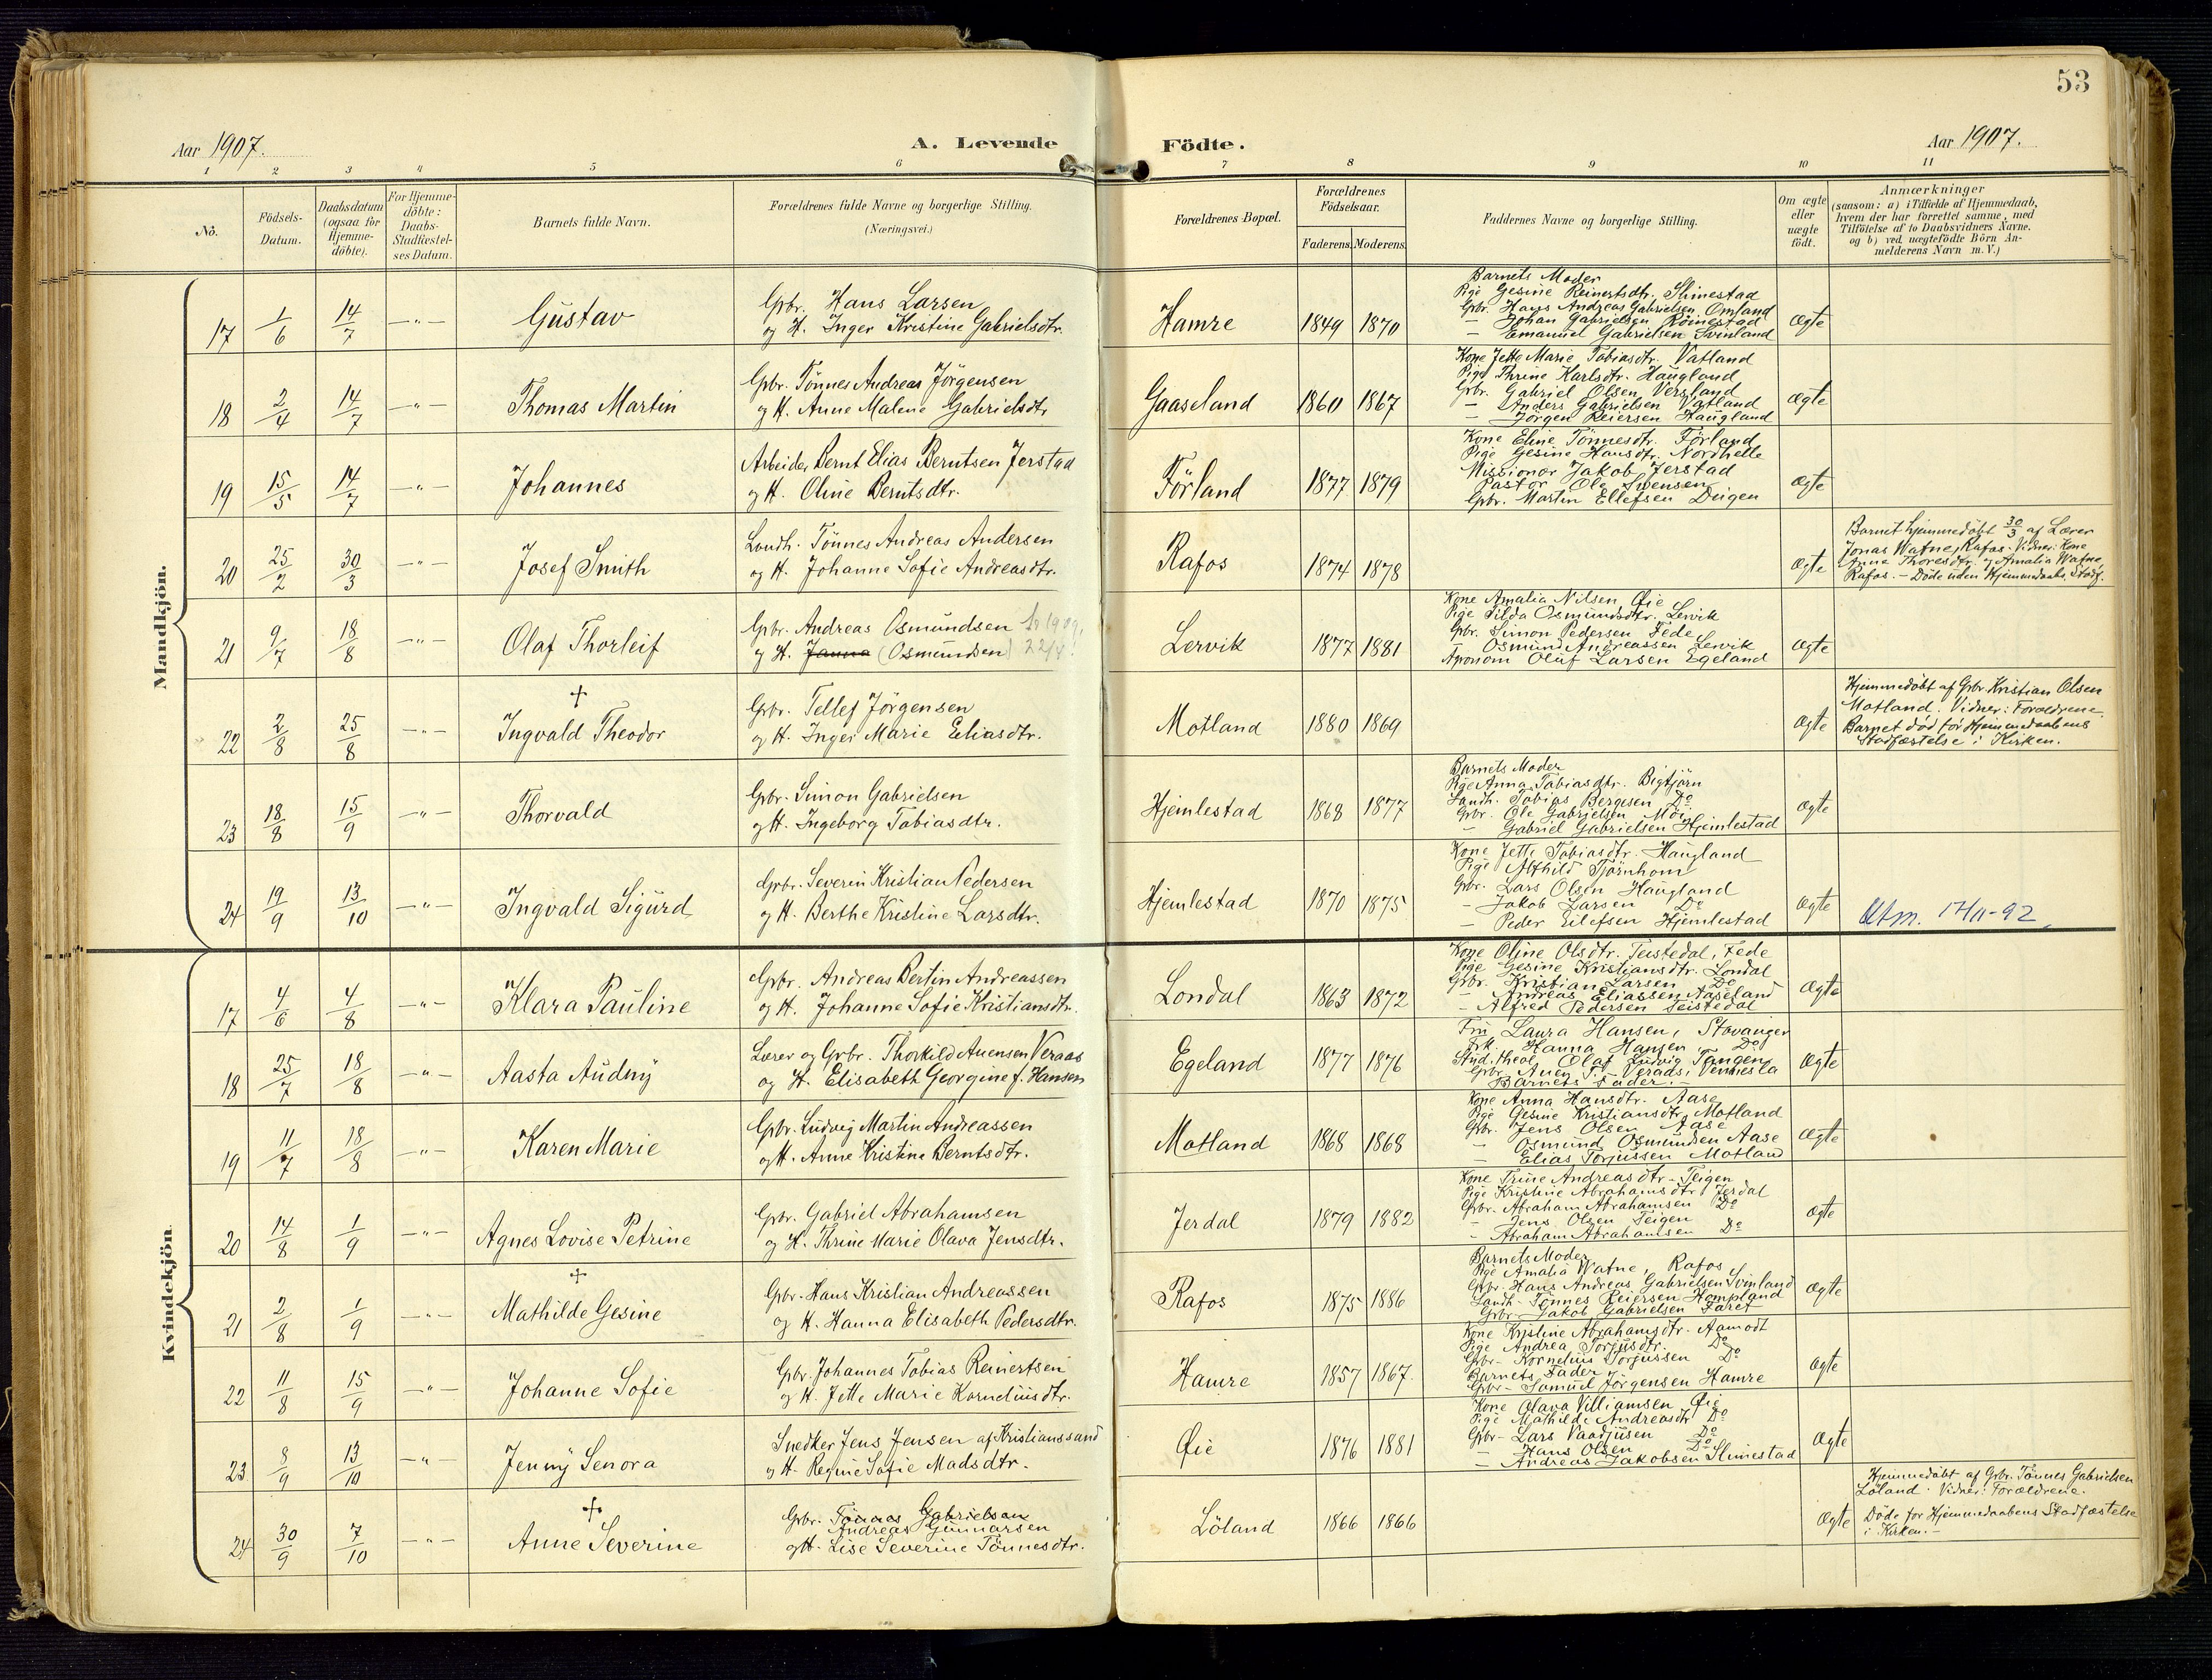 53
Aar 1907.
A. Levende
Födte.
Aar 1907.
1 2 3 4 5 6 7 8 9 10 11
No.
Födsels-
Datum.
Daabsdatum
(ogsaa for
Hjemme-
döbte).
For Hjemme-
döbte:
Daabs-
Stadfæstel-
ses Datum.
Barnets fulde Navn.
Forældrenes fulde Navne og borgerlige Stilling.
(Næringsvei.)
Forældrenes Bopæl.
Forældrenes
Födselsaar.
Faderens. Moderens.
Faddernes Navne og borgerlige Stilling.
Om ægte
eller
uægte
födt.
Anmærkninger
(saasom: a) i Tilfælde af Hjemmedaab,
hvem der har forrettet samme, med
Tilföielse af to Daabsvidners Navne.
og b) ved uægtefödte Börn An-
melderens Navn m.V.)
Mandkjön.
17 1/6 14/7 —"— Gustav
Gbr. Hans Larsen
og H. Inger Kristine Gabrielsdtr.
Hamre 1849 1870
Barnets Moder
Pige Gesine Reinertsdtr. Slimestad
Gbr. Hans Andreas Gabrielsen, Omland
— Johan Gabrielsen Römestad
— Emanuel Gabrielsen Svinland
Ægte
18 2/4 14/7 —"— Thomas Martin
Gbr. Tönnes Andreas Jörgensen
og H. Anne Malene Gabrielsdtr.
Gaaseland 1860 1867
Kone Jette Marie Tobiasdtr. Vatland
Pige Thrine Karlsdtr. Haugland
Gbr. Gabriel Olsen Versland
— Anders Gabrielsen Vatland
— Jörgen Reiersen Haugland
Ægte
19 15/5 14/7 —"— Johannes
Arbeider Bernt Elias Berntsen Jerstad
og H. Oline Berntsdtr.
Förland 1877 1879
Kone Eline Tönnesdtr. Förland
Pige Gesine Hansdtr. Nordhelle
Missionær Jakob Jerstad
Pastor Ole Svensen
Gbr. Martin Ellefsen Dugen
Ægte
20 25/2 30/3 —"— Josef Smith
Landh. Tönnes Andreas Andersen
og H. Johanne Sofie Andreasdtr.
Rafos 1874 1878
Ægte
Barnet hjemmedöbt 30/3 af Lærer
Jonas Watne, Rafos. Vidner: Kone
Anna Thoresdtr. og Amalia Watne,
Rafos. — Döde uden Hjemmedaabs Stadf.
21 9/7 18/8 —"— Olaf Thorleif
Gbr. Andreas Osmundsen
og H. Janna (Osmundsen)
Lervik 1877 1881
Kone Amalia Nilsen Öie
Pige Tilda Osmundsdtr. Lervik
Gbr. Simon Pedersen Fede
Osmund Andreassen Lervik
Oluf Larsen Egeland
Ægte
22 2/8 25/8 —"— + Ingvald Theodor
Gbr. Tellef Jörgensen
og H. Inger Marie Eliasdtr.
Motland 1880 1869
Ægte
Hjemmedöbt af Gbr. Kristian Olsen
Motland. Vidner: Forældrene.
Barnet död för Hjemmedaabens
Stadfæstelse i Kirken.
23 18/8 15/9 —"— Thorvald
Gbr. Simon Gabrielsen
og H. Ingeborg Tobiasdtr.
Hjemlestad 1868 1877
Barnets Moder
Pige Anna Tobiasdtr. Bigtjörn
Landh. Tobias Bergesen Do
Gbr. Ole Gabrielsen Möi
— Gabriel Gabrielsen Hjemlestad
Ægte
24 19/9 13/10 —"— Ingvald Sigurd
Gbr. Severin Kristian Pedersen
og H. Berthe Kristine Larsdtr.
Hjemlestad 1870 1875
Kone Jette Tobiasdtr. Haugland
Pige Alfhild Tjörnhom
Gbr. Lars Olsen Haugland
— Jakob Larsen Do
— Peder Eilefsen Hjemlestad
Ægte
Utm. 17/11-92
Kvindekjön
17 4/6 4/8 —"— Klara Pauline
Gbr. Andreas Bertin Andreassen
og H. Johanne Sofie Kristiansdtr.
Londal 1863 1872
Kone Oline Olsdtr. Teistedal, Fede
Pige Gesine Kristiansdtr. Londal
Gbr. Kristian Larsen Do
— Andreas Eliassen Aaseland
— Alfred Pedersen Teistedal
Ægte
18 25/7 18/8 —"— Aasta Audny
Lærer og Gbr. Thorkild Auensen Veraas
og H. Elisabeth Georgine f. Hansen
Egeland 1877 1876
Fru Laura Hansen, Stavanger
Frk. Hanna Hansen, Do
Stud. theol. Olaf Ludvig Tangen
Gbr. Auen T. Veraas, Vennesla
Barnets Fader.—
Ægte
19 11/7 18/8 —"— Karen Marie
Gbr. Ludvig Martin Andreassen
og H. Anne Kristine Berntsdtr.
Motland 1868 1868
Kone Anna Hansdtr. Aase
Pige Gesine Kristiansdtr. Motland
Gbr. Jens Olsen Aase
— Osmund Osmundsen Aase
— Elias Torjussen Motland
Ægte
20 14/8 1/9 —"— Agnes Lovise Petrine
Gbr. Gabriel Abrahamsen
og H. Thrine Marie Olava Jensdtr.
Jerdal 1879 1882
Kone Trine Andreasdtr. Teigen
Pige Kristine Abrahamsdtr. Jerdal
Gbr. Abraham Abrahamsen Do
— Jens Olsen Teigen
— Abraham Abrahamsen Do
Ægte
21 2/8 1/9 —"— + Mathilde Gesine
Gbr. Hans Kristian Andreassen
og H. Hanna Elisabeth Pedersdtr.
Rafos 1875 1886
Barnets Moder
Pige Amalia Watne, Rafos
Gbr. Hans Andreas Gabrielsen Svinland
Landh. Tönnes Reiersen Hompland
Gbr. Jakob Gabrielsen Faret
Ægte
22 11/8 15/9 —"— Johanne Sofie
Gbr. Johannes Tobias Reinertsen
og H. Jette Marie Korneliusdtr.
Hamre 1857 1867.
Kone Kristine Abrahamsdtr. Aamodt
Pige Andrea Torjusdtr. Do
Gbr. Kornelius Torjussen Do
Barnets Fader
Gbr. Samuel Jörgensen Hamre
Ægte
23 8/9 13/10 —"— Jenny Senora
Snedker Jens Jensen af Kristianssand
og H. Regine Sofie Madsdtr.
Öie 1876 1881
Kone Olava Villiamsen Öie
Pige Mathilde Andreasdtr. Do
Gbr. Lars Vaadjusen Do
— Hans Olsen Do
— Andreas Jakobsen Slimestad
Ægte
24 30/9 7/10 —"— + Anne Severine
Gbr. Tönnes Gabrielsen
Andreas Gunnarsen
og H. Lise Severine Tönnesdtr.
Löland 1866 1866
Ægte
Hjemmedöbt af Gbr. Tönnes Gabrielsen
Löland. Vidner: Forældrene.
Döde for Hjemmedaabens Stadfæstelse
i Kirken.—